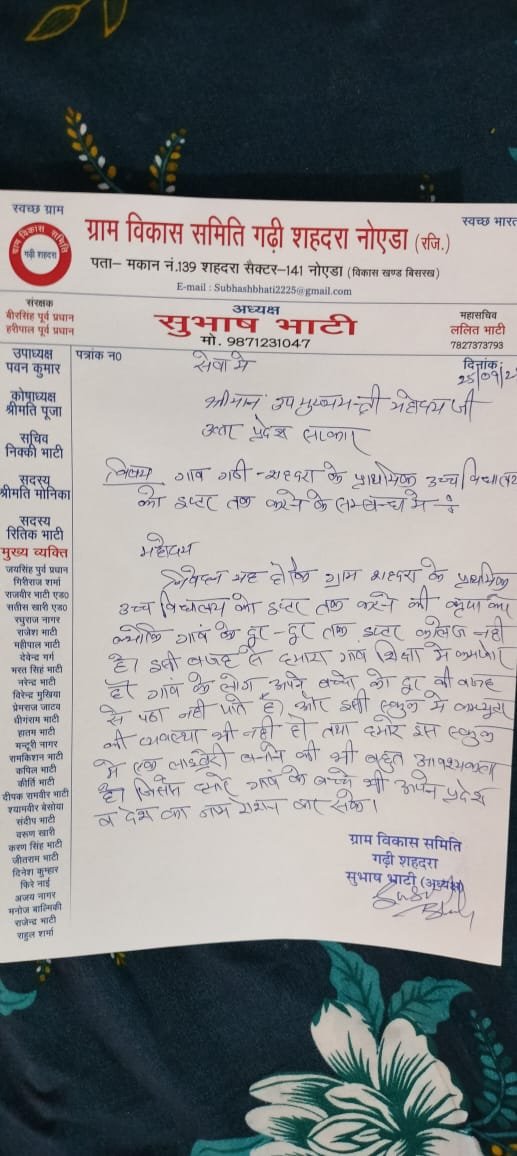 स्वच्छ ग्राम
स्वच्छ भारत
ग्राम विकास समिति
गढ़ी शहदरा
ग्राम विकास समिति गढ़ी शहदरा नोएडा (रजि.)
पता– मकान नं.139 शहदरा सैक्टर–141 नोएडा (विकास खण्ड बिसरख)
E-mail : Subhashbhati2225@gmail.com
संरक्षक
बीरसिंह पूर्व प्रधान
हरीपाल पूर्व प्रधान
अध्यक्ष
सुभाष भाटी
मो. 9871231047
महासचिव
ललित भाटी
7827373793
उपाध्यक्ष
पवन कुमार
कोषाध्यक्ष
श्रीमति पूजा
सचिव
निक्की भाटी
सदस्य
श्रीमति मोनिका
सदस्य
रितिक भाटी
मुख्य व्यक्ति
जयसिंह पुर्व प्रधान
गिरीराज शर्मा
राजवीर भाटी एड०
सतीस खारी एड०
रघुराज नागर
राजेश भाटी
महीपाल भाटी
देवेन्द्र गर्ग
भरत सिंह भाटी
नरेन्द्र भाटी
विरेन्द्र मुखिया
प्रेमराज जाटव
धीगंराम भाटी
हातम भाटी
मन्टूरी नागर
रामकिशन भाटी
कपिल भाटी
कीर्ति भाटी
दीपक रामवीर भाटी
श्यामवीर बेसोया
संदीप भाटी
वरूण खारी
करण सिंह भाटी
जीतराम भाटी
दिनेश कुम्हार
फिरे नाई
अजय नागर
मनोज बाल्मिकी
राजेन्द्र भाटी
राहुल शर्मा
पत्रांक न०
दिनांक
सेवा मे
श्रीमान उप मुख्यमन्त्री महोदय जी
उत्तर प्रदेश सरकार
विषय गांव गढी-शहदरा के प्राथमिक उच्च विधालय
को इण्टर तक करने के सम्बन्ध मे
महोदय
निवेदन यह है कि ग्राम शहदरा के प्राथमिक
उच्च विधालय को इण्टर तक करने की कृपा करे
क्योकि गांव के दुर-दुर तक इण्टर कॉलेज नही
है। इसी वजह से हमारा गांव शिक्षा मे कमजोर
है। गांव के लोग अपने बच्चो को दुर की वजह
से पढा नही पाते है। और इसी स्कुल मे कम्प्युटर
की व्यवस्था भी नही है। तथा हमारे इस स्कुल
मे एक लाइब्रेरी बनाने की भी बहुत आवश्यकता
है। जिससे हमारे गांव के बच्चे भी अपने प्रदेश
व देश का नाम रोशन कर सके।
ग्राम विकास समिति
गढ़ी शहदरा
सुभाष भाटी (अध्यक्ष)